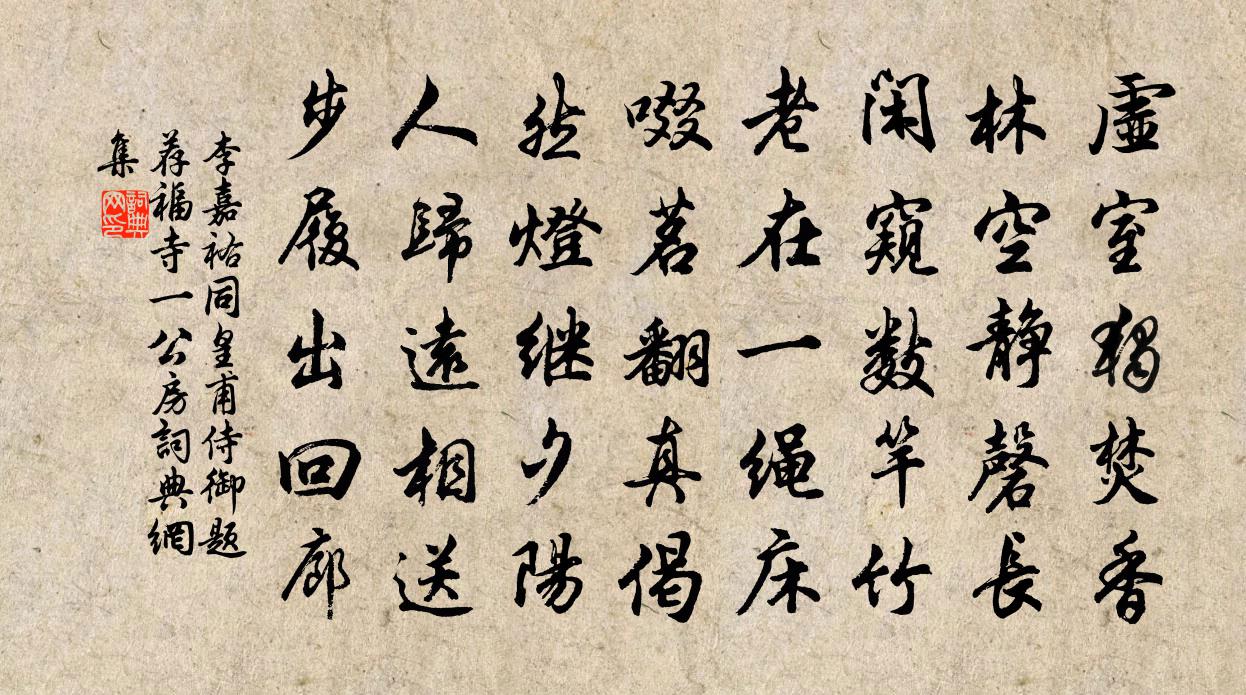 虛室獨焚香
林空靜磬長
閑窺數竿竹
老在一绳床
啜茗翻真偈
然燈继夕陽
人歸遠相送
步履出回廊
李嘉祐同皇甫侍御題
荐福寺一公房詞典網
集
詞典网印